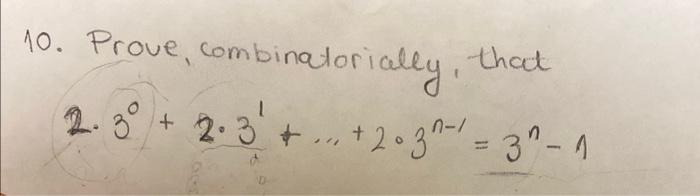 10. Prove, combinatorially, that
2·3⁰ + 2·3¹ + ... + 2·3ⁿ⁻¹ = 3ⁿ - 1